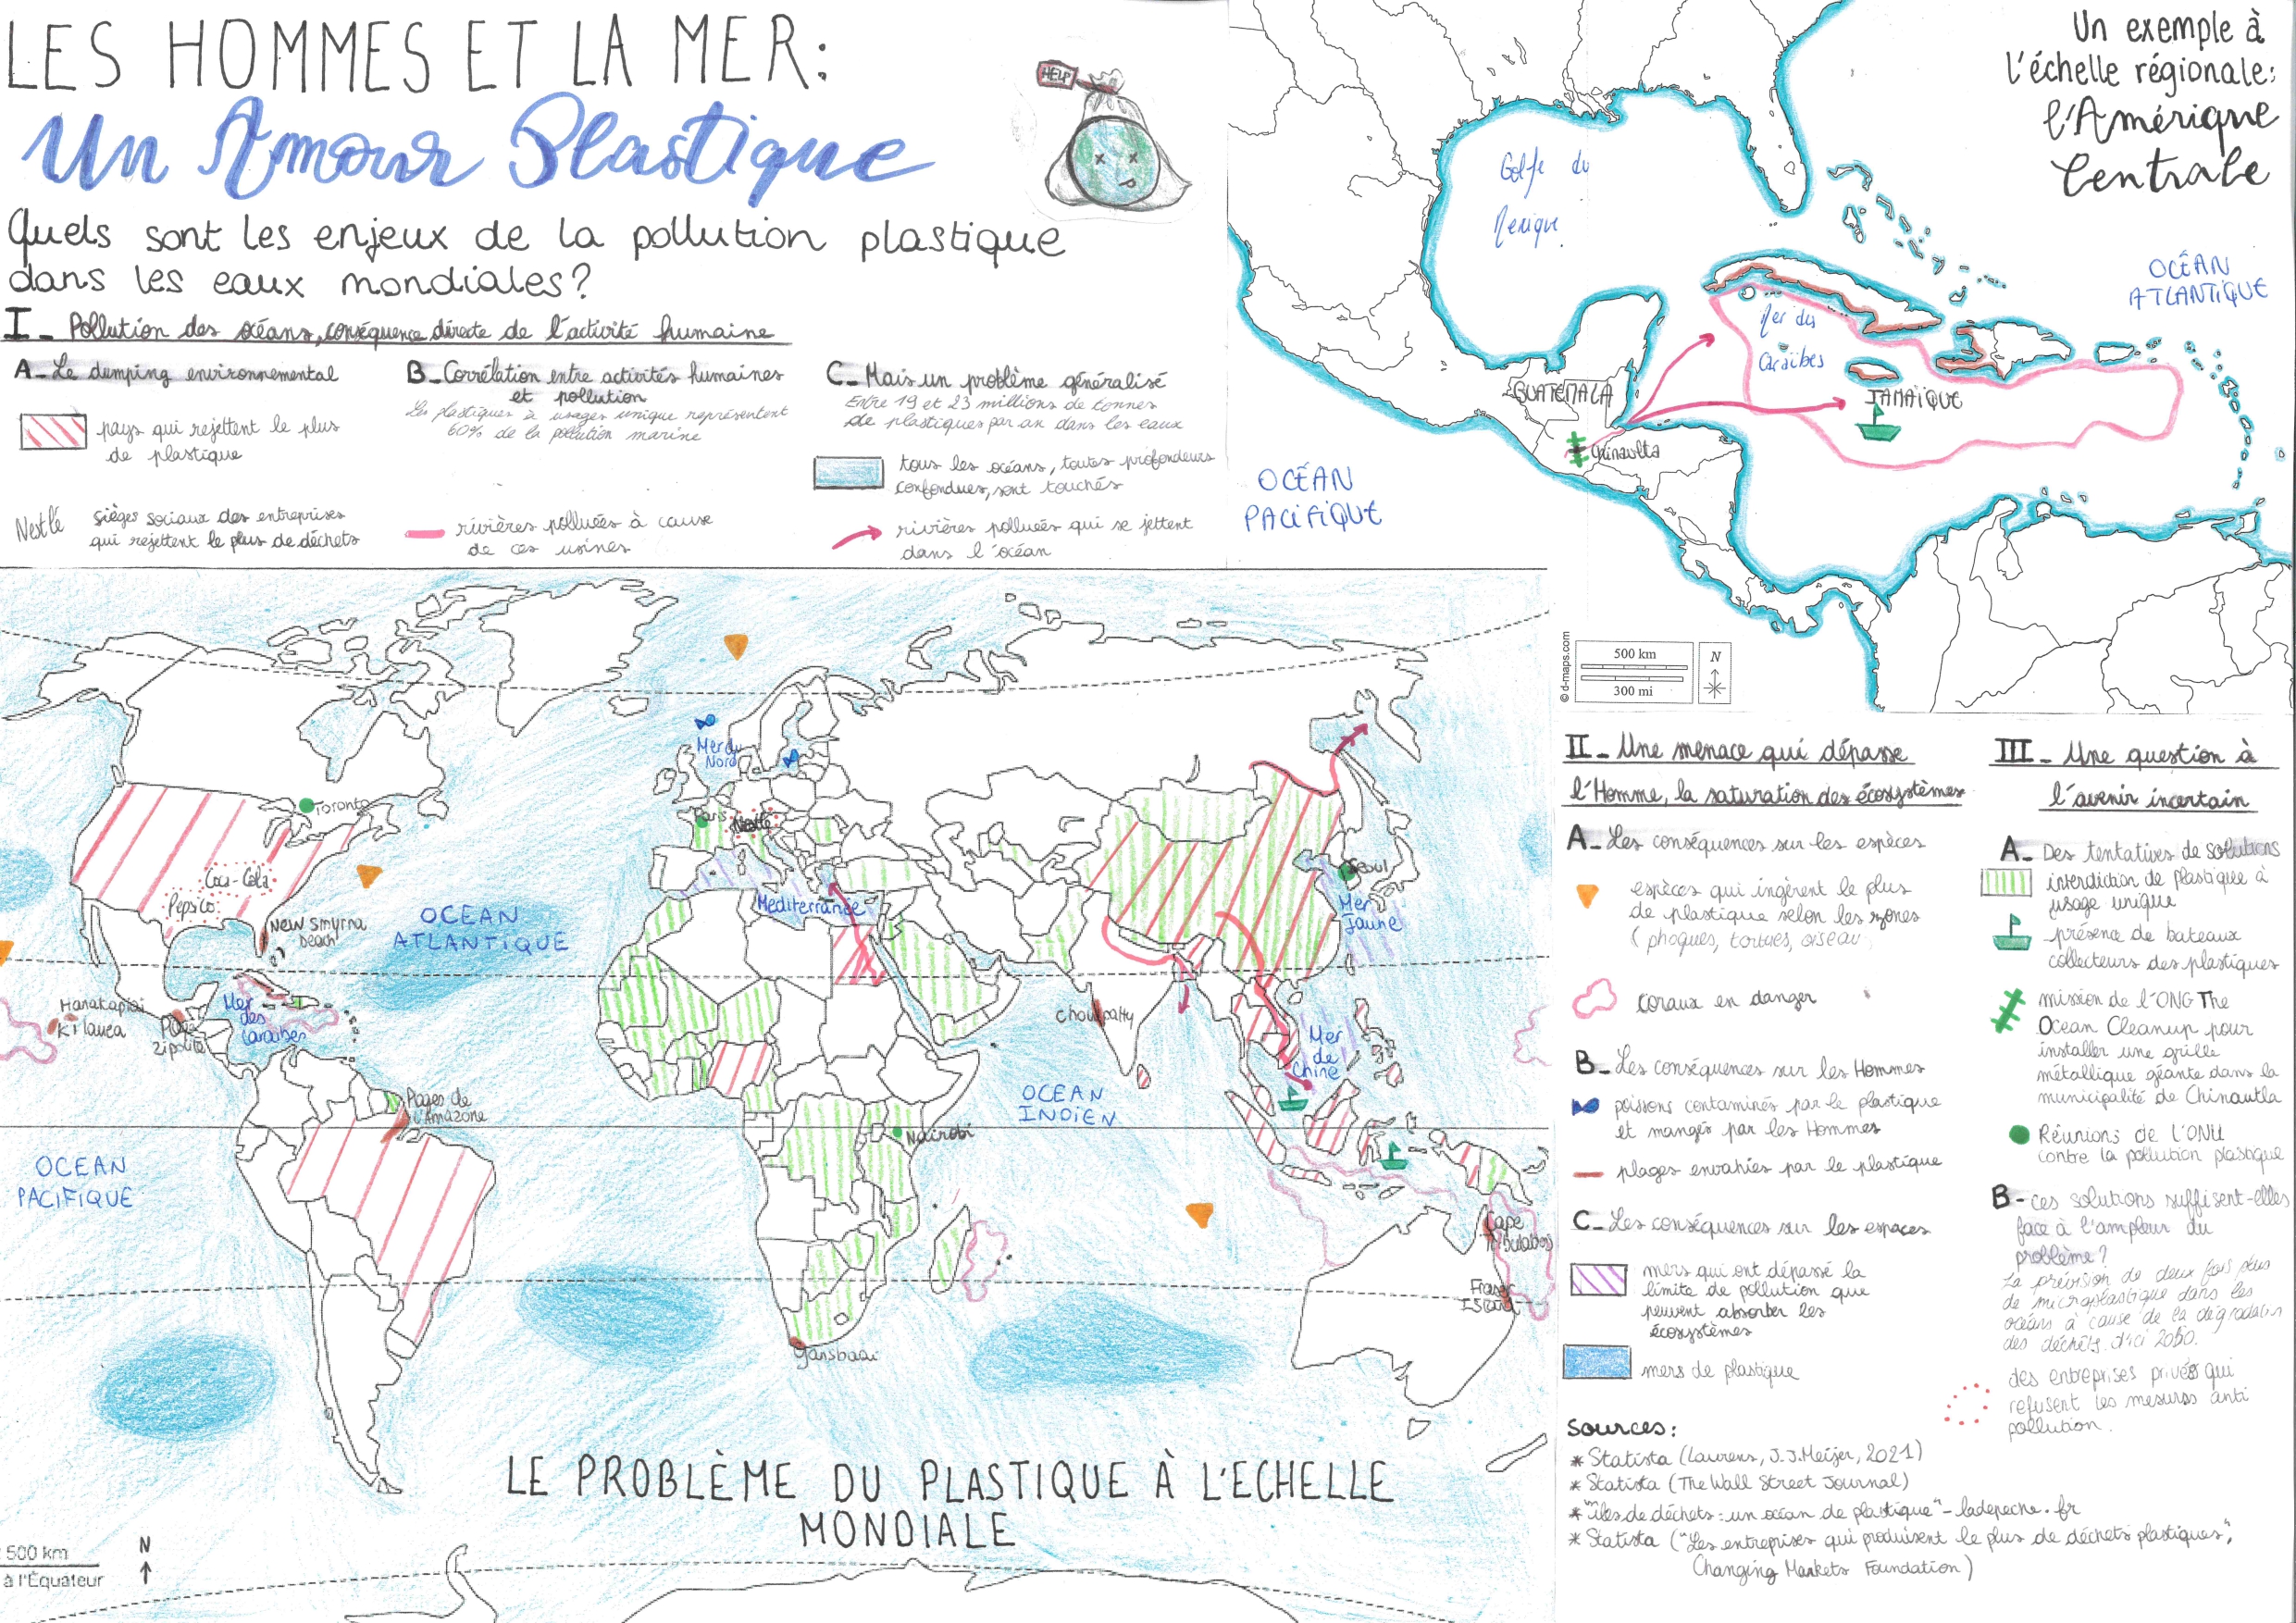 LES HOMMES ET LA MER:
Un Amour Plastique
HELP
Quels sont les enjeux de la pollution plastique
dans les eaux mondiales?
I_ Pollution des océans, conséquence directe de l'activité humaine
A_ Le dumping environnemental
pays qui rejettent le plus
de plastique
Nestlé
sièges sociaux des entreprises
qui rejettent le plus de déchets
B_ Corrélation entre activités humaines
et pollution
Les plastiques à usages unique représentent
60% de la pollution marine
rivières polluées à cause
de ces usines
C_ Mais un problème généralisé
Entre 19 et 23 millions de tonnes
de plastiques par an dans les eaux
tous les océans, toutes profondeurs
confondues, sont touchés
rivières polluées qui se jettent
dans l'océan
Un exemple à
l'échelle régionale:
l'Amérique
Centrale
Golfe du
Mexique
OCÉAN
ATLANTIQUE
Mer des
Caraïbes
GUATEMALA
JAMAÏQUE
Chinaulta
OCÉAN
PACIFIQUE
© d-maps.com
500 km
300 mi
N
Mer du
Nord
Toronto
Paris
Nestlé
Coca-Cola
Pepsico
Seoul
New Smyrna
beach
OCEAN
ATLANTIQUE
Mediterranée
Mer
Jaune
Hanakapiai
Kilauea
Playa
Zipolite
Mer
des
Caraïbes
Choupatty
Mer
de
Chine
Plages de
l'Amazone
OCEAN
INDIEN
Nairobi
OCEAN
PACIFIQUE
Cape
Fraser
Island
Gansbaai
LE PROBLÈME DU PLASTIQUE À L'ECHELLE
MONDIALE
500 km
à l'Équateur
N
II_ Une menace qui dépasse
l'Homme, la saturation des écosystèmes
A_ Les conséquences sur les espèces
espèces qui ingèrent le plus
de plastique selon les zones
(phoques, tortues, oiseau
coraux en danger
B_ Les conséquences sur les Hommes
poissons contaminés par le plastique
et mangés par les Hommes
plages envahies par le plastique
C_ Les conséquences sur les espaces
mers qui ont dépassé la
limite de pollution que
peuvent absorber les
écosystèmes
mers de plastique
Sources:
* Statista (Laurens, J.J.Meijer, 2021)
* Statista (The Wall Street Journal)
* "îles de déchets: un océan de plastique" - ladepeche.fr
* Statista ("Les entreprises qui produisent le plus de déchets plastiques",
Changing Markets Foundation)
III_ Une question à
l'avenir incertain
A_ Des tentatives de solutions
interdiction de plastique à
usage unique
présence de bateaux
collecteurs des plastiques
mission de l'ONG The
Ocean Cleanup pour
installer une grille
métallique géante dans la
municipalité de Chinautla
Réunions de l'ONU
contre la pollution plastique
B- ces solutions suffisent-elles
face à l'ampleur du
problème?
La prévision de deux fois plus
de microplastique dans les
océans à cause de la dégradation
des déchets d'ici 2050.
des entreprises privés qui
refusent les mesures anti
pollution.